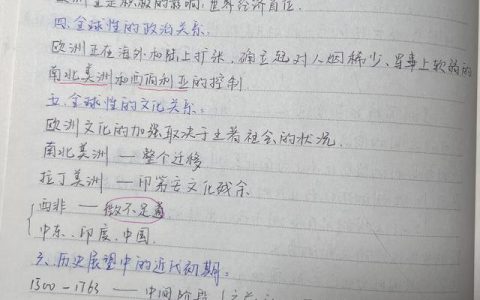 欧洲
的影响,世界经济首位.
四.全球性的政治关系.
欧洲正在海外和陆上扩张,确立起对人烟稀少、军事上软弱的
南北美洲和西伯利亚的控制.
五.全球性的文化关系.
欧洲文化的加强取决于土著社会的状况.
南北美洲 — 整个迁移
拉丁美洲 — 印第安文化残余.
西非 — 微不足道
中东、印度、中国.
六.历史展望中的近代初期.
1500-1763 — 中间阶段